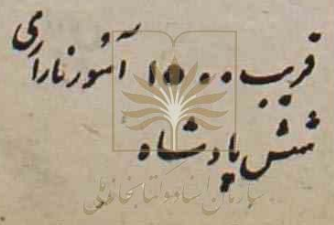 قریب ۱۵۰۰ آشور نارارای
شش پادشاه
سازمان اسناد و کتابخانه ملی